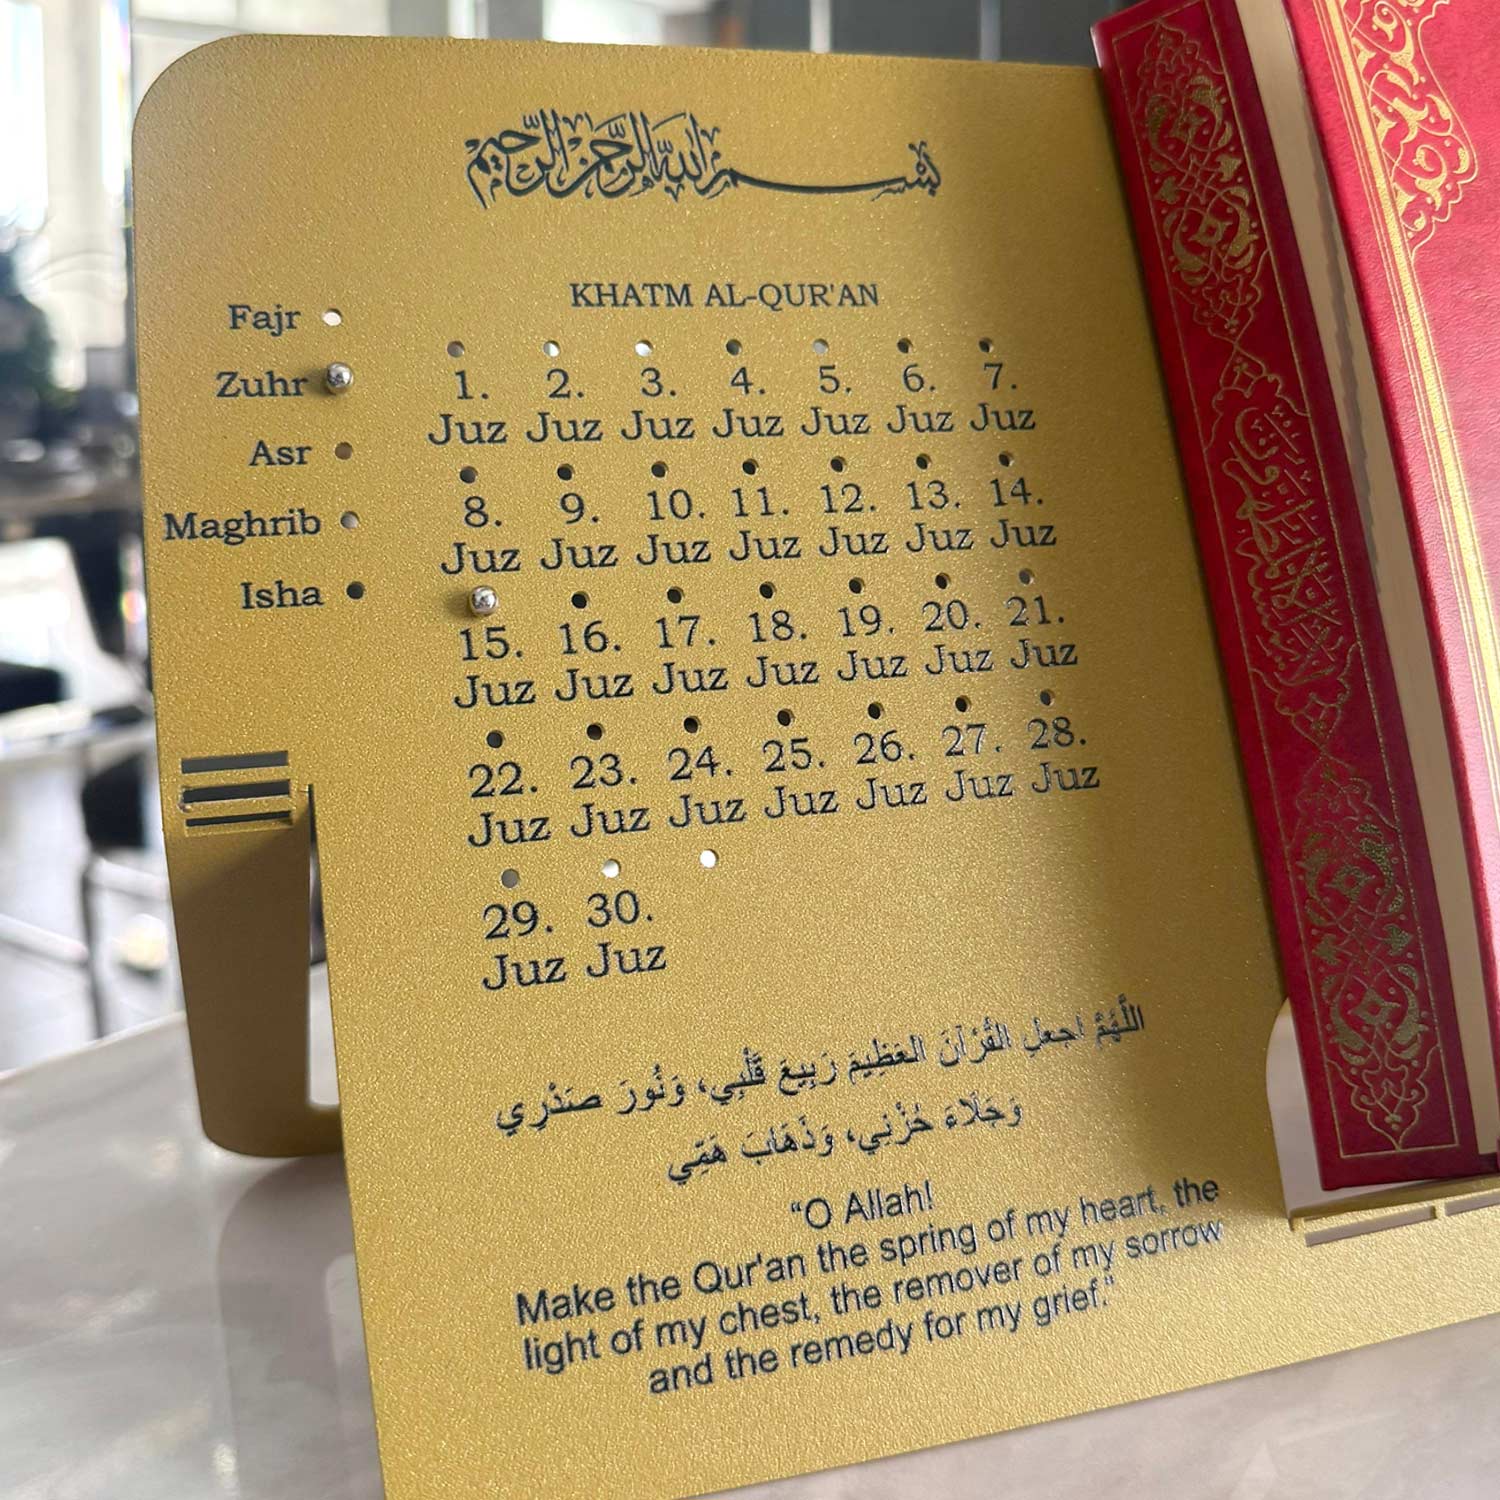 بسم الله الرحمن الرحيم
KHATM AL-QUR'AN
Fajr
Zuhr
Asr
Maghrib
Isha
1. 2. 3. 4. 5. 6. 7.
Juz Juz Juz Juz Juz Juz Juz
8. 9. 10. 11. 12. 13. 14.
Juz Juz Juz Juz Juz Juz Juz
15. 16. 17. 18. 19. 20. 21.
Juz Juz Juz Juz Juz Juz Juz
22. 23. 24. 25. 26. 27. 28.
Juz Juz Juz Juz Juz Juz Juz
29. 30.
Juz Juz
اللَّهُمَّ اجعلِ القُرْآنَ العَظِيمَ رَبِيعَ قَلْبِي، وَنُورَ صَدْرِي
وَجَلَاءَ حُزْنِي، وَذَهَابَ هَمِّي
“O Allah!
Make the Qur'an the spring of my heart, the
light of my chest, the remover of my sorrow
and the remedy for my grief.”